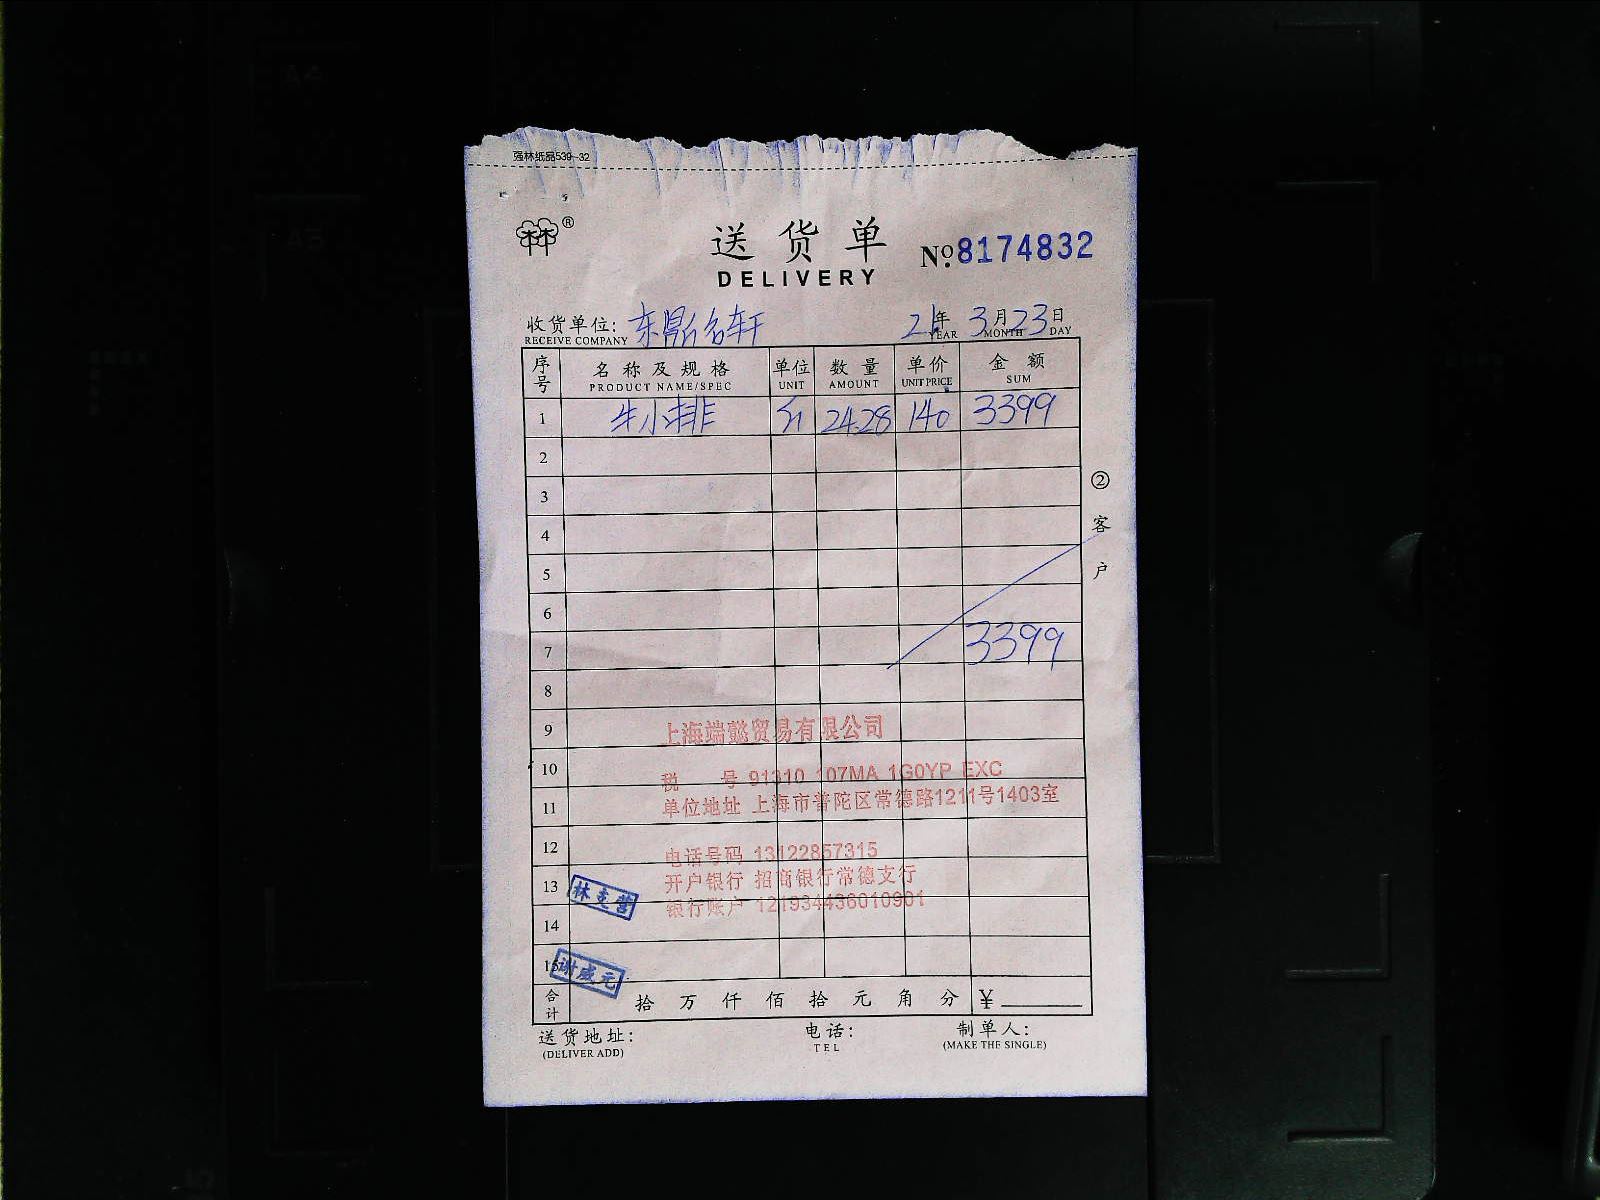 强林纸品539-32
林林®
送货单
DELIVERY
No.8174832
收货单位: 东鼎名轩 21年3月23日
RECEIVE COMPANY YEAR MONTH DAY
序号 名称及规格 单位 数量 单价 金额
PRODUCT NAME/SPEC UNIT AMOUNT UNIT PRICE SUM
1 牛小排 斤 24.28 140 3399
2
3
4
5
6
7 3399
8
9 上海端懿贸易有限公司
10 税 号 91310 107MA 1G0YP EXC
11 单位地址 上海市普陀区常德路1211号1403室
12 电话号码 13122857315
13 开户银行 招商银行常德支行
林 营
14 银行账户 121934436010901
15 谢盛元
合计 拾万仟佰拾元角分 ¥
②客户
送货地址: 电话: 制单人:
(DELIVER ADD) TEL (MAKE THE SINGLE)